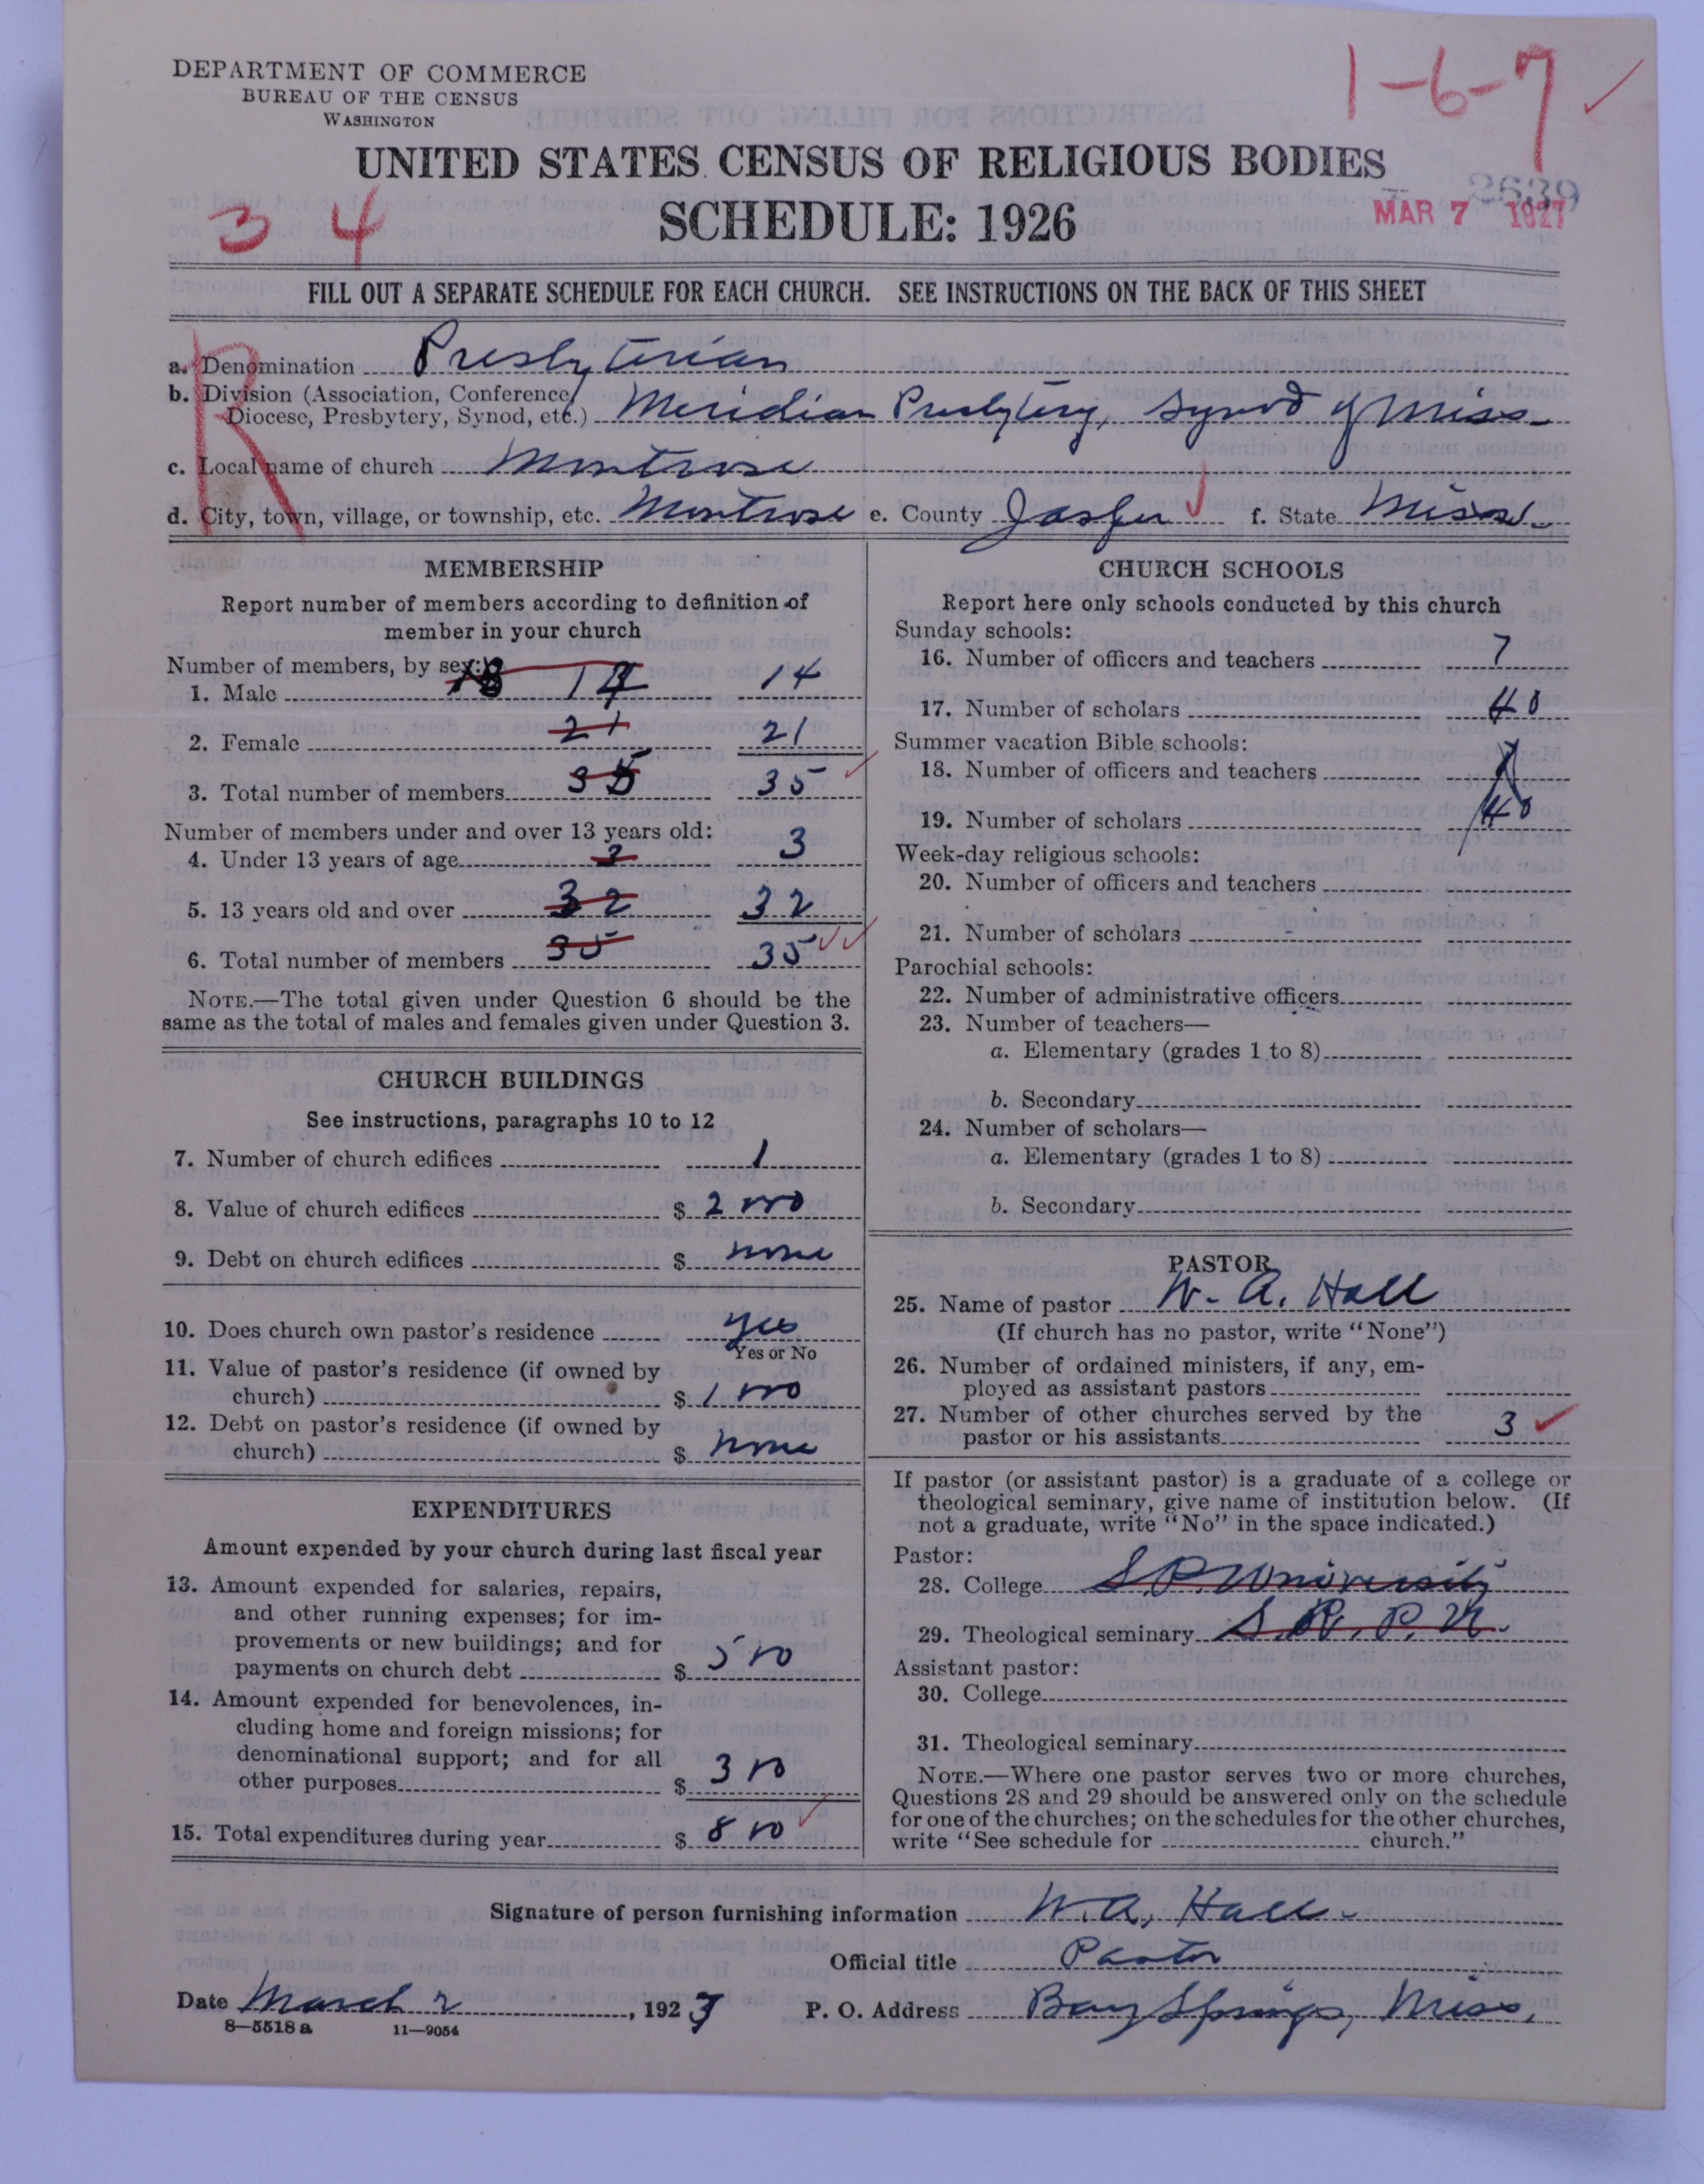 DEPARTMENT OF COMMERCE
BUREAU OF THE CENSUS
WASHINGTON
1-6-7 ✓
UNITED STATES CENSUS OF RELIGIOUS BODIES
SCHEDULE: 1926
3 4
2639
MAR 7 1927
FILL OUT A SEPARATE SCHEDULE FOR EACH CHURCH. SEE INSTRUCTIONS ON THE BACK OF THIS SHEET
R
a. Denomination Presbyterian
b. Division (Association, Conference,
Diocese, Presbytery, Synod, etc.) Meridian Presbytery, Synod of Miss
c. Local name of church Montrose
d. City, town, village, or township, etc. Montrose e. County Jasper ✓ f. State Miss.
MEMBERSHIP
Report number of members according to definition of
member in your church
Number of members, by sex:
1. Male 14 14
2. Female 21 21
3. Total number of members 35 35 ✓
Number of members under and over 13 years old:
4. Under 13 years of age 3 3
5. 13 years old and over 32 32
6. Total number of members 35 35 ✓✓
NOTE.—The total given under Question 6 should be the
same as the total of males and females given under Question 3.
CHURCH BUILDINGS
See instructions, paragraphs 10 to 12
7. Number of church edifices 1
8. Value of church edifices $ 2000
9. Debt on church edifices $ none
10. Does church own pastor's residence yes
Yes or No
11. Value of pastor's residence (if owned by
church) $ 1000
12. Debt on pastor's residence (if owned by
church) $ none
EXPENDITURES
Amount expended by your church during last fiscal year
13. Amount expended for salaries, repairs,
and other running expenses; for im-
provements or new buildings; and for
payments on church debt $ 500
14. Amount expended for benevolences, in-
cluding home and foreign missions; for
denominational support; and for all
other purposes $ 300
15. Total expenditures during year $ 800 ✓
CHURCH SCHOOLS
Report here only schools conducted by this church
Sunday schools:
16. Number of officers and teachers 7
17. Number of scholars 40
Summer vacation Bible schools:
18. Number of officers and teachers 7
19. Number of scholars 40
Week-day religious schools:
20. Number of officers and teachers
21. Number of scholars
Parochial schools:
22. Number of administrative officers
23. Number of teachers—
a. Elementary (grades 1 to 8)
b. Secondary
24. Number of scholars—
a. Elementary (grades 1 to 8)
b. Secondary
PASTOR
25. Name of pastor W. A. Hall
(If church has no pastor, write "None")
26. Number of ordained ministers, if any, em-
ployed as assistant pastors
27. Number of other churches served by the
pastor or his assistants 3 ✓
If pastor (or assistant pastor) is a graduate of a college or
theological seminary, give name of institution below. (If
not a graduate, write "No" in the space indicated.)
Pastor:
28. College S. P. University
29. Theological seminary S. P. U.
Assistant pastor:
30. College
31. Theological seminary
NOTE.—Where one pastor serves two or more churches,
Questions 28 and 29 should be answered only on the schedule
for one of the churches; on the schedules for the other churches,
write "See schedule for church."
Signature of person furnishing information W. A. Hall
Official title Pastor
Date March 2, 1927 P. O. Address Bay Springs, Miss.
8—5518 a 11—9054